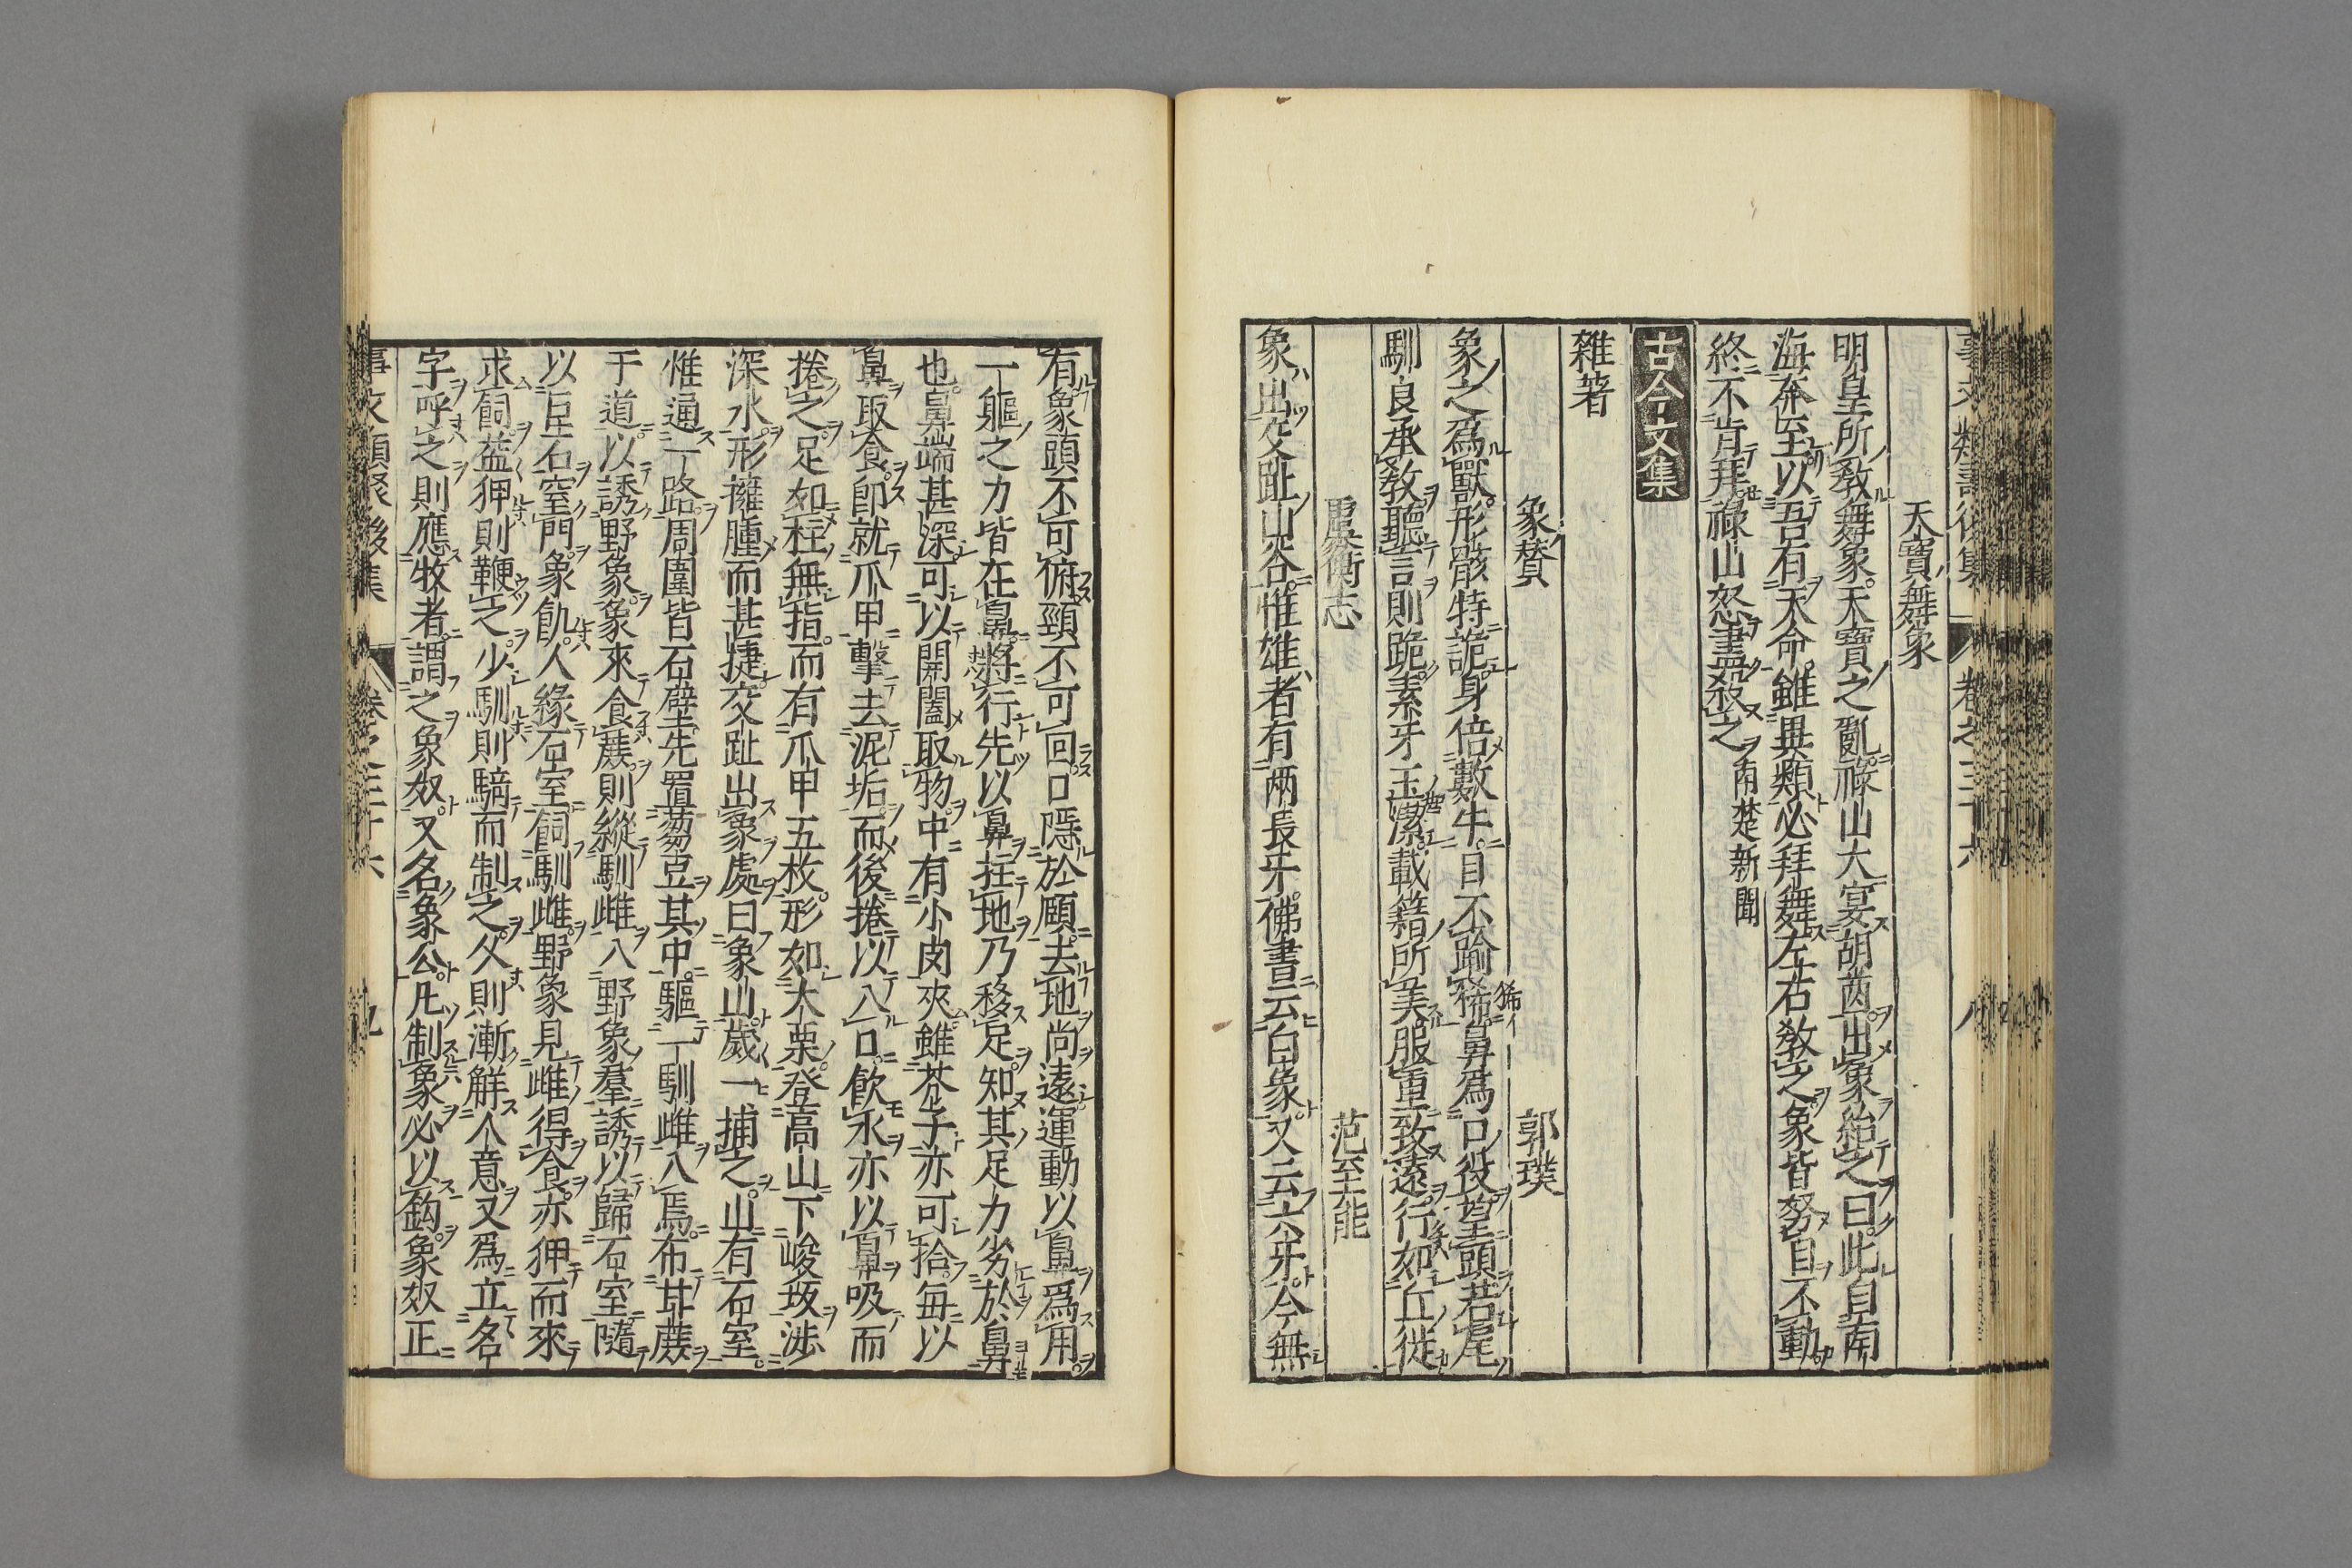 天寶舞象
明皇所敎舞象天寶之亂祿山大宴胡酋出象紿之曰此自南
海奔至以吾有天命雖異類必拜舞左右敎之象皆努目不動
終不肯拜祿山怒盡殺之南楚新聞
古今文集
雜著
象賛 郭璞
象之爲獸形骸特詭身倍數牛目不踰狶鼻爲口役望頭若尾
馴良承敎聽言則跪素牙玉潔載籍所美服重致遠行如丘徙
虞衡志 范至能
象出交趾山谷惟雄者有兩長牙佛書云白象又云六牙今無
有象頭不可俯頸不可回口隱於頤去地尚遠運動以鼻爲用
一軀之力皆在鼻將行先以鼻拄地乃移足知其足力劣於鼻
也鼻端甚深可以開闔取物中有小肉夾雖芥子亦可拾每以
鼻取食卽就爪甲擊去泥垢而後捲以入口飮水亦以鼻吸而
捲之足如柱無指而有爪甲五枚形如大栗登高山下峻坂渉
深水形擁腫而甚捷交趾出象處曰象山歲一捕之山有石室
惟通一路周圍皆石壁先置蒭豆其中驅一馴雌入焉布甘蔗
于道以誘野象象來食蔗則縱馴雌入野象羣誘以歸石室隨
以巨石窒門象飢人緣石室飼馴雌野象見雌得食亦狎而來
求飼益狎則鞭之少馴則騎而制之久則漸解人意又爲立名
字呼之則應牧者謂之象奴又名象公凡制象必以鈎象奴正
事文類聚後集 卷之三十六 九